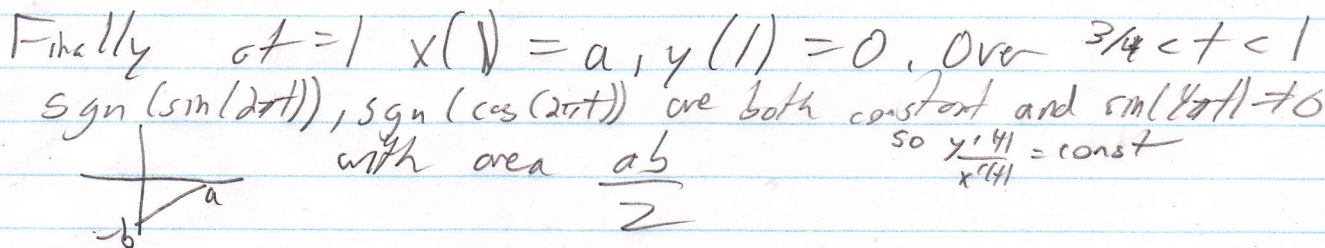 Finally at = 1 x(1) = a, y(1) = 0. Over 3/4 < t < 1
sgn(sin(2πt)), sgn(cos(2πt)) are both constant and sin(4πt) ≠ 0
so y'(t)/x'(t) = const
with area ab/2
a
-b